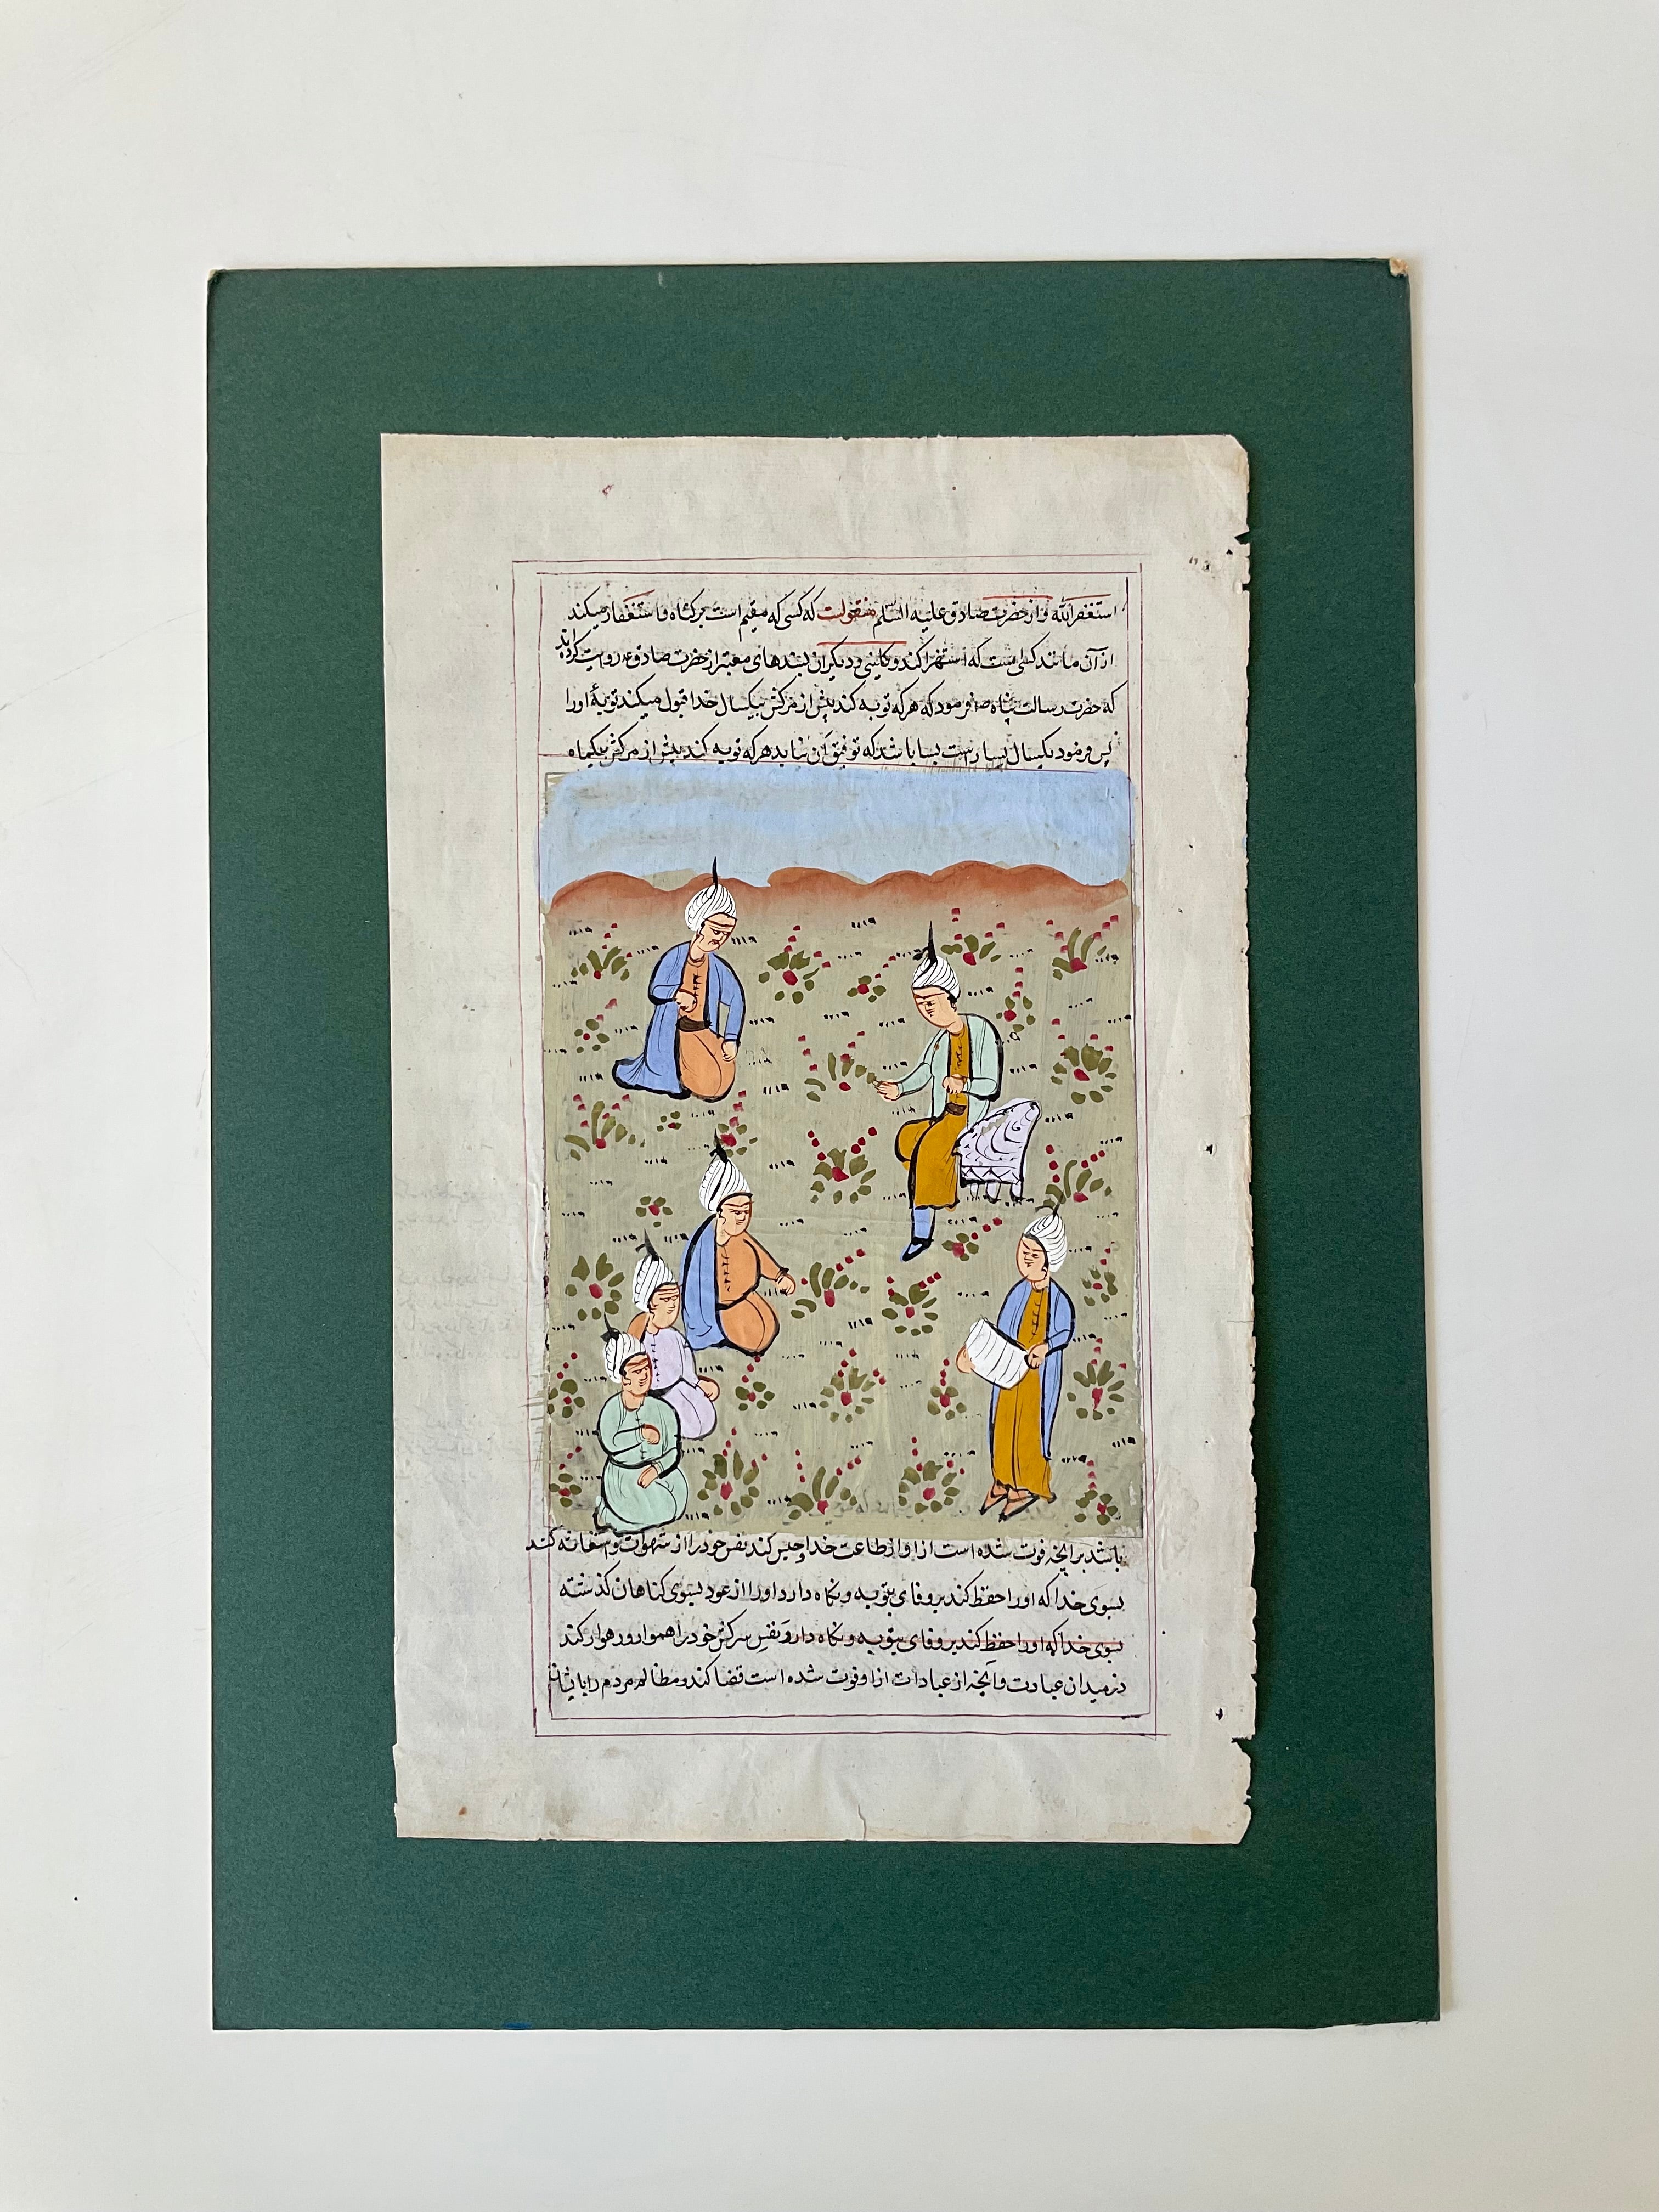 استغفرالله و از حضرت صادق علیه السلم منقولست که کسی که مقیم است بر گناه و استغفار میکند
از آن مانند کسی است که استهزا کند و کلینی و دیگران بسندهای معتبر از حضرت صادق ع روایت کرده‌اند
که حضرت رسالت پناه ص فرمود که هر که توبه کند پیش از مرکش بیکسال خدا قبول میکند توبهٔ او را
پس فرمود یکسال بسیار است بسا باشد که توفیق آن نیابد هر که توبه کند پیش از مرکش بیکماه
باشد بر آنچه فوت شده است از او از طاعت خدا و حبس کند نفس خود را از شهوات و استغاثه کند
بسوی خدا که او را حفظ کند بر وفای بتوبه و نگاه دارد او را از عود بسوی کناهان کذشته
بسوی خدا که او را حفظ کند بر وفای بتوبه و نگاه دارد و نفس سرکش خود را هموار و رهوار کند
در میدان عبادت و آنچه از عبادات از او فوت شده است قضا کند و مظالم مردم را بایشان